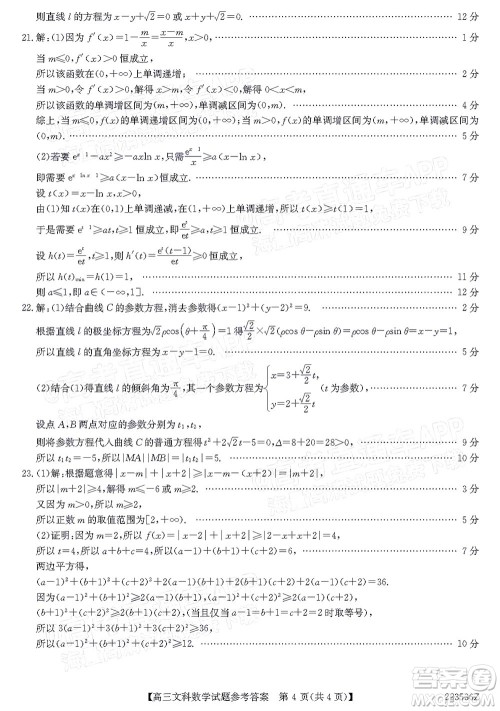 则直线 l 的方程为 x－y＋√2＝0 或 x－y＝0. 12 分
21.解:(1)因为 f′(x)＝1－m/x＝(x－m)/x,x＞0, 1 分
当 m≤0,f′(x)＞0 恒成立,
所以该函数在(0,＋∞)上单调递增; 2 分
当 m＞0,令 f′(x)＞0,解得 x＞m,令 f′(x)＜0,解得 0＜x＜m,
所以函数的单调递增区间为(m,＋∞),单调减区间为(0,m).
综上,当 m≤0,函数的单调递增区间为(0,＋∞);当 m＞0,函数的单调递增区间为(m,＋∞),单调减区间为
(0,m). 5 分
7 分
设 t(x)＝x－ln x,
由(1)知 t(x)在(0,1)上单调递减,在(1,＋∞)上单调递增,所以 t(x)≥t(1)＝1.
9 分
所以 h(t)min＝h(1)＝1. 11 分
则 a≤1,即 a∈(－∞,1]. 12 分
22.解:(1)结合曲线 C 的参数方程,消去参数得(x－1)²＋(y－2)²＝9. 2 分
根据直线 l 的极坐标方程为√2ρcos(θ＋π/4)＝1得√2×√2/2(ρcos θ－ρsin θ)＝ρcos θ－ρsin θ＝1,
所以直线 l 的直角坐标方程为 x－y－1＝0. 5 分
(2)结合(1)得直线 l 的倾斜角为π/4,其一个参数方程为{x＝3＋√2/2 t, y＝2＋√2/2 t (t 为参数),
设点 A,B 两点对应的参数分别为 t₁,t₂,
则将参数方程代入曲线 C 的普通方程得 t²＋2√2t－5＝0,Δ＝8＋20＝28＞0, 9 分
所以 t₁t₂＝－5,所以|MA||MB|＝|t₁t₂|＝5. 10 分
23.(1)解:根据题意得|x－m|＋|x＋m|≥|x－m－(x＋m)|＝|2m|,
所以|2m|≥4,解得 m≥2 或 m≤－2. 3 分
又因为 m＞0,
所以正数 m 的取值范围为[2,＋∞). 5 分
(2)证明:因为 m＝2,
所以 t＝4,所以 a＋b＋c＝4,所以(a－1)＋(b＋1)＋(c＋2)＝6, 7 分
两边平方得,
(a－1)²＋(b＋1)²＋(c＋2)²＋2(a－1)(b＋1)＋2(b＋1)(c＋2)＋2(a－1)(c＋2)＝36.
因为(a－1)²＋(b＋1)²≥2(a－1)(b＋1),(a－1)²＋(c＋2)²≥2(a－1)(c＋2),
(b＋1)²＋(c＋2)²≥2(b＋1)(c＋2)(三个式子当且仅当 a＝3,b＝1,c＝0 时,取等号),
所以 3(a－1)²＋3(b＋1)²＋3(c＋2)²≥36,
所以(a－1)²＋(b＋1)²＋(c＋2)²≥12. 10 分
【高三文科数学试题参考答案 第 4 页(共 4 页)】